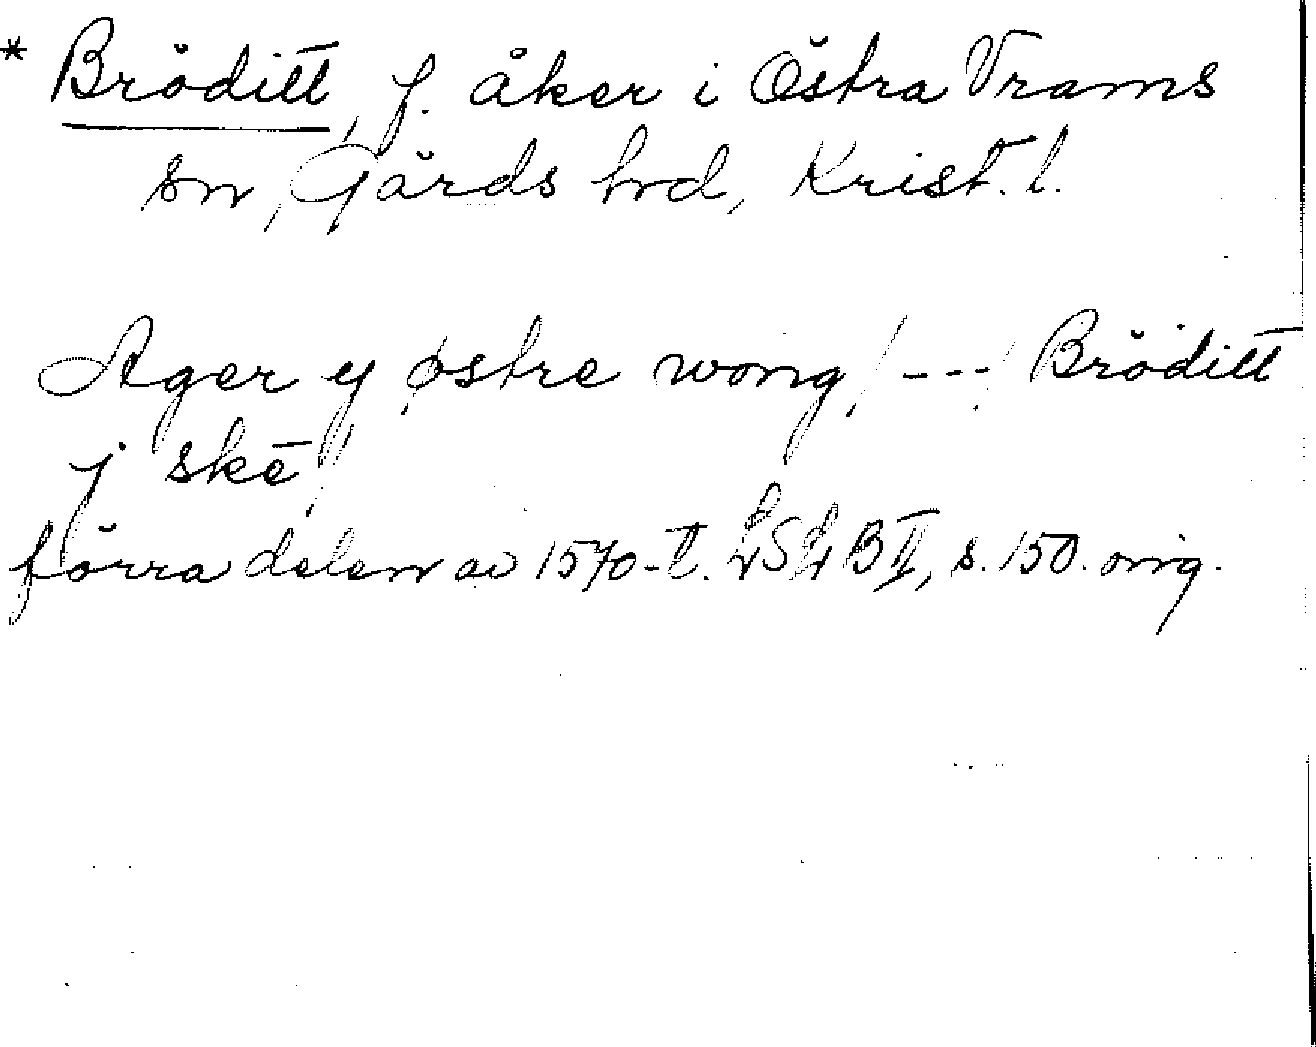 * Bröditt, f. åker i Östra Vrams
sn, Gärds hrd, Krist. l.
Ager y østre wong / --- / Bröditt
j skē /
förra delen av 1570-t. LSLB II, s. 150. orig.